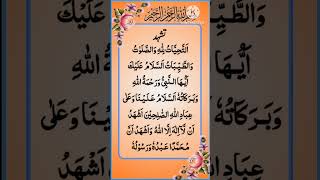 بِسْمِ اللهِ الرَّحْمٰنِ الرَّحِيْمِ
تشہد
اَلتَّحِيَّاتُ لِلّٰهِ وَالصَّلَوٰتُ
وَالطَّيِّبَاتُ اَلسَّلَامُ عَلَيْكَ
اَيُّهَا النَّبِيُّ وَرَحْمَةُ اللهِ
وَبَرَكَاتُهٗ اَلسَّلَامُ عَلَيْنَا وَعَلٰى
عِبَادِ اللهِ الصّٰلِحِيْنَ اَشْهَدُ
اَنْ لَّآ اِلٰهَ اِلَّا اللهُ وَاَشْهَدُ اَنَّ
مُحَمَّدًا عَبْدُهٗ وَرَسُوْلُهٗ